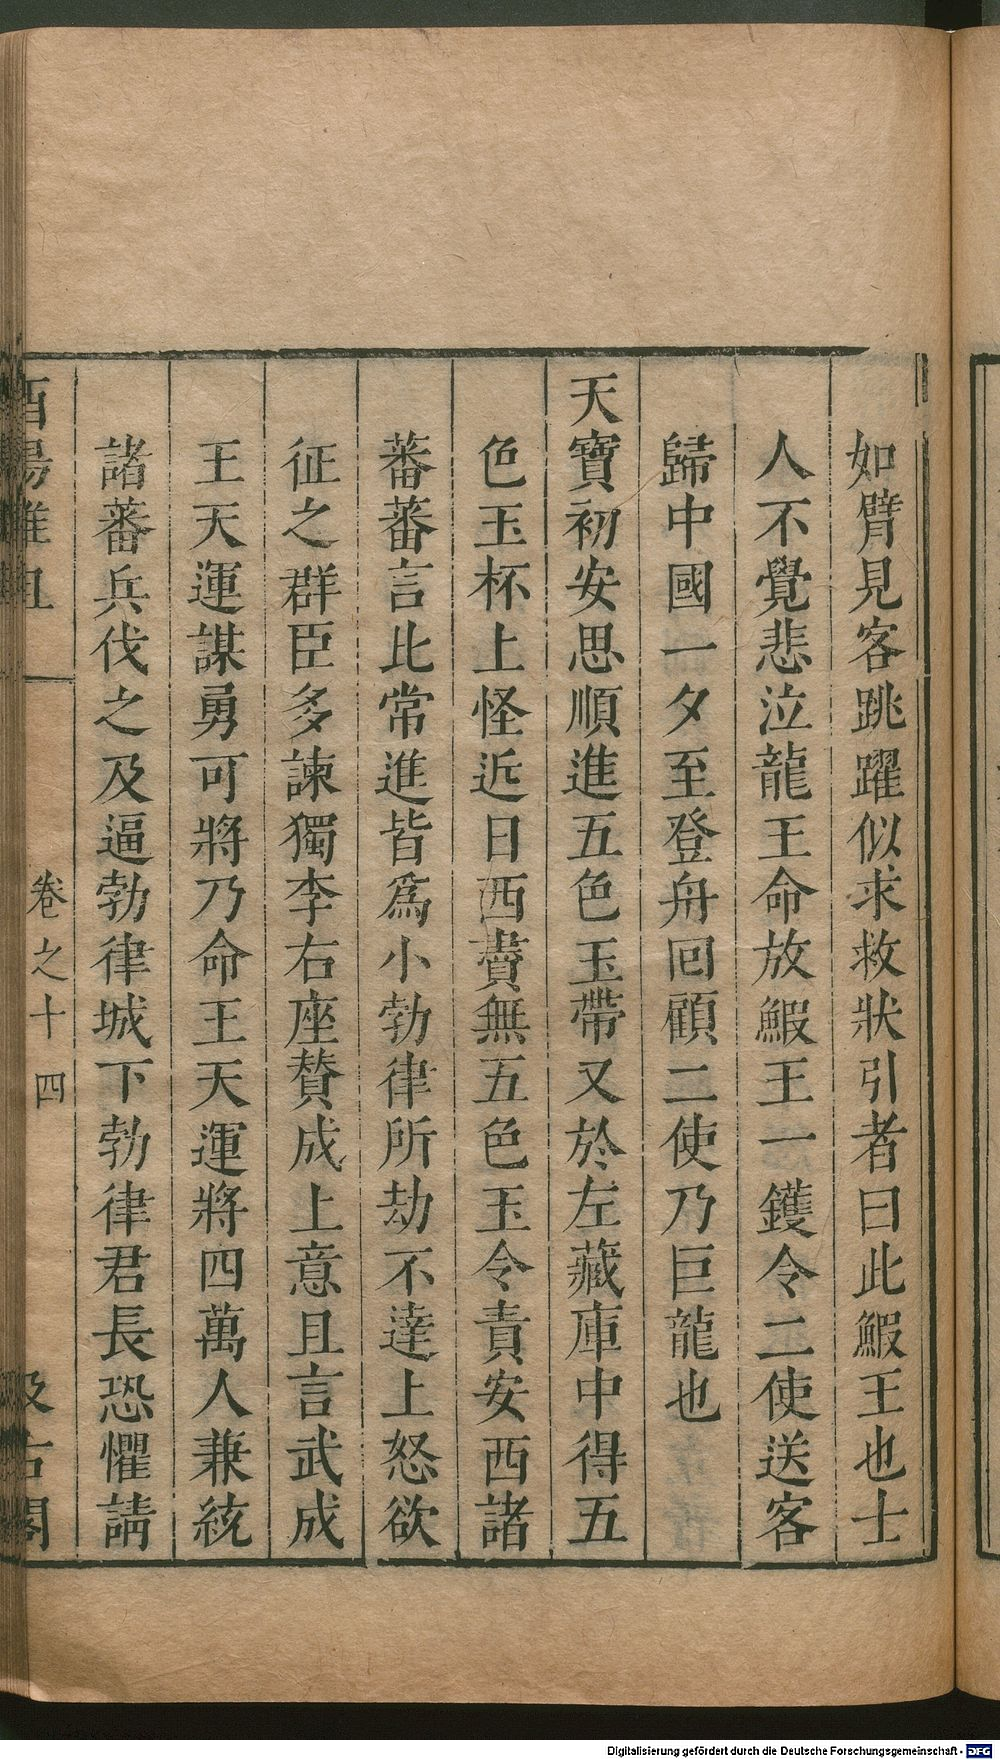 如臂見客跳躍似求救狀引者曰此鰕王也士
人不覺悲泣龍王命放鰕王一鑊令二使送客
歸中國一夕至登舟回顧二使乃巨龍也
天寶初安思順進五色玉帶又於左藏庫中得五
色玉杯上怪近日西賮無五色玉令責安西諸
蕃蕃言比常進皆爲小勃律所劫不達上怒欲
征之群臣多諫獨李右座贊成上意且言武成
王天運謀勇可將乃命王天運將四萬人兼統
諸蕃兵伐之及逼勃律城下勃律君長恐懼請
酉陽雜俎 卷之十四 汲古閣
Digitalisierung gefördert durch die Deutsche Forschungsgemeinschaft - DFG